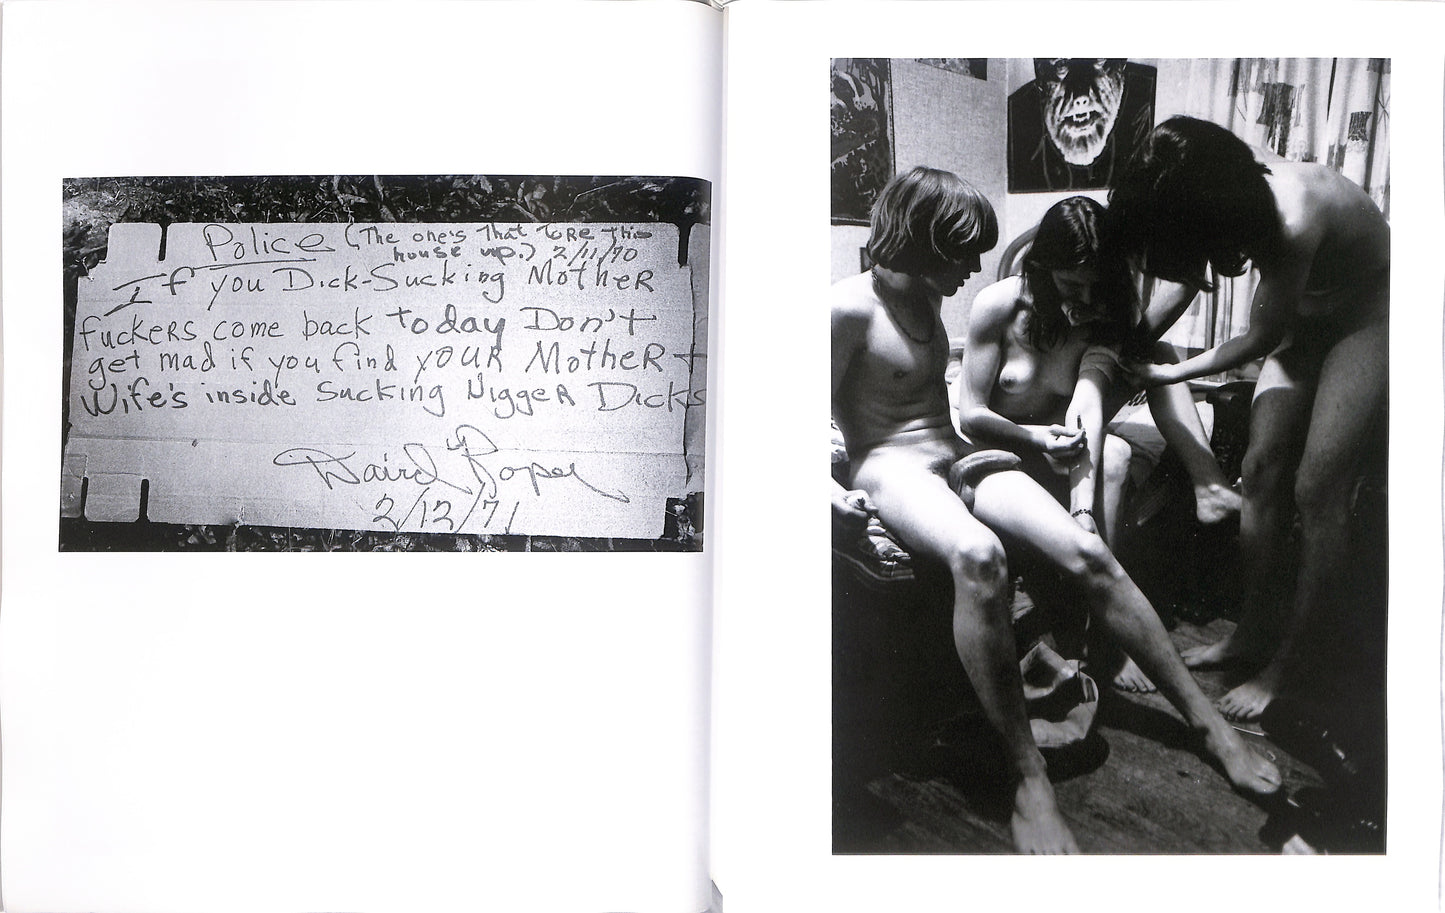 Police (The one's That ToRe This
house up.) 2/11/70
If you Dick-Sucking MotheR
fuckeRs come back today Don't
get mad if you find youR MotheR +
Wife's inside Sucking NiggeR Dicks
Roper
2/12/71